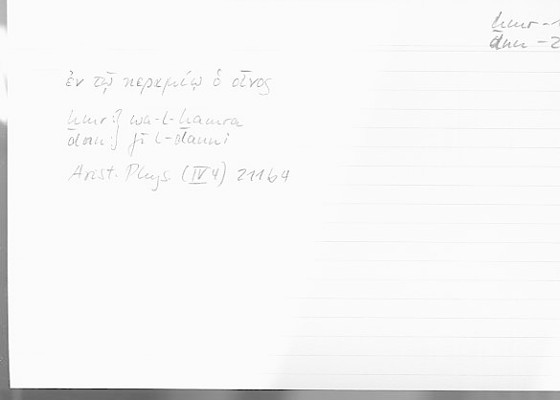 ḫmr -1
dnn -2
ἐν τῷ κεραμίῳ ὁ οἶνος
ḫmr :} wa-l-ḫamra
dnn :} fī l-danni
Arist. Phys. (IV 4) 211b4